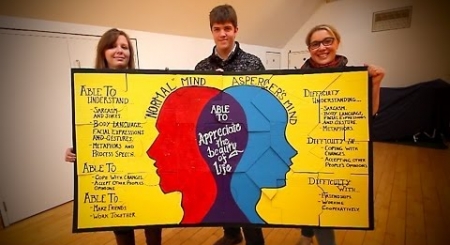 "NORMAL" MIND
ABLE TO
UNDERSTAND...
- SARCASM
AND JOKES
- BODY LANGUAGE,
FACIAL EXPRESSIONS
AND GESTURES
- METAPHORS AND
PROCESS SPEECH.
ABLE TO
- COPE WITH CHANGES,
- ACCEPT OTHER PEOPLE'S
OPINIONS
ABLE TO
- MAKE FRIENDS
- WORK TOGETHER
ABLE TO
Appreciate
the
beauty
of
life
ASPERGER'S MIND
DIFFICULTY
UNDERSTANDING...
- SARCASM,
- BODY LANGUAGE,
FACIAL EXPRESSIONS
AND GESTURE,
- METAPHORS
DIFFICULTY IN
- COPING WITH
CHANGES,
- ACCEPTING OTHER
PEOPLE'S OPINIONS.
DIFFICULTY
WITH...
- WORKING
COOPERATIVELY